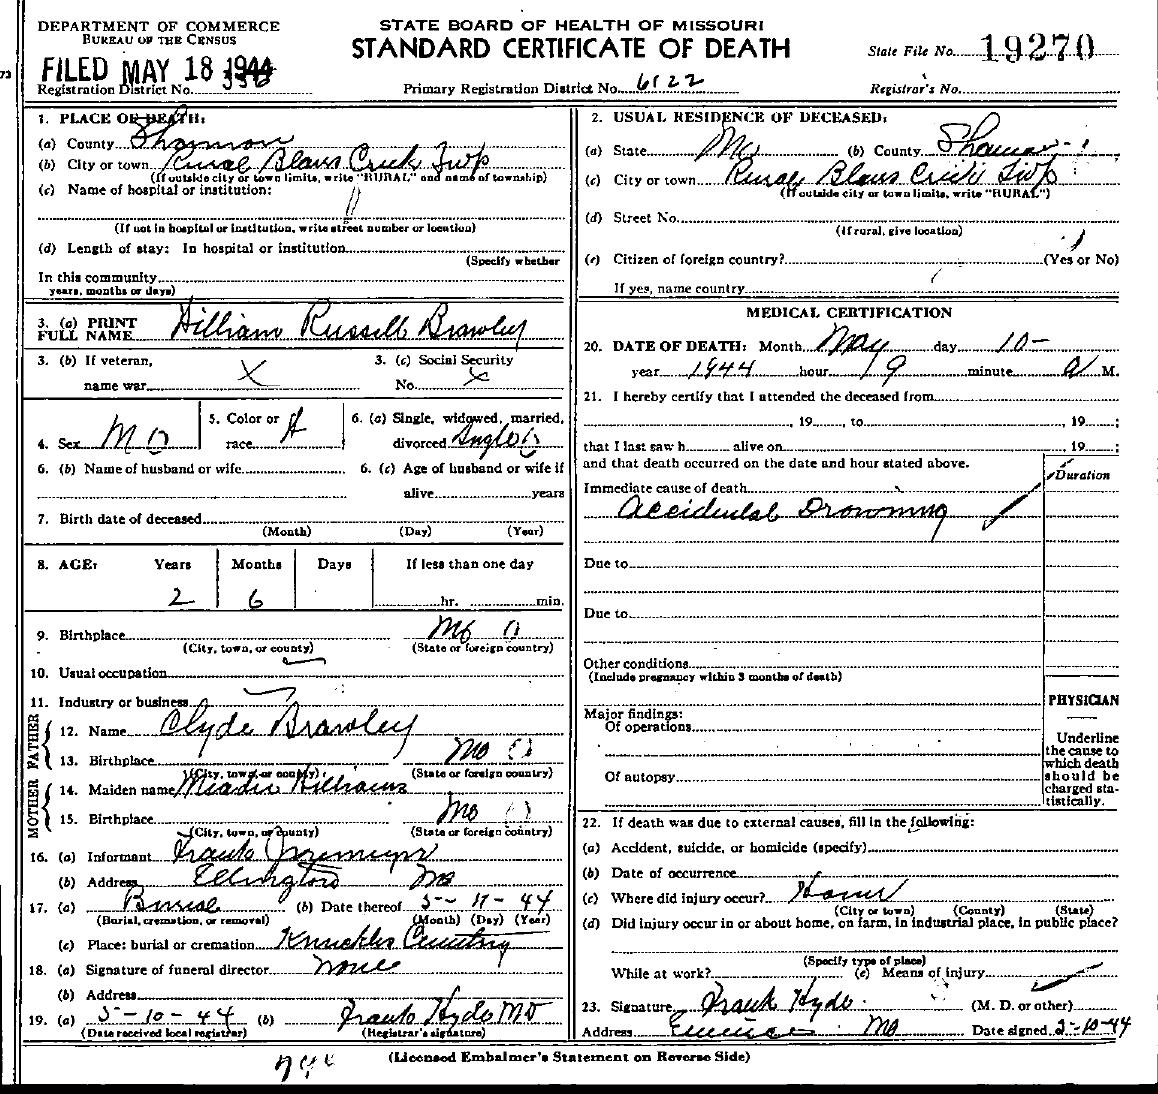 DEPARTMENT OF COMMERCE
BUREAU OF THE CENSUS
STATE BOARD OF HEALTH OF MISSOURI
STANDARD CERTIFICATE OF DEATH
State File No. 19270
FILED MAY 18 1944
Registration District No. 336
Primary Registration District No. 6122
Registrar's No.
73
1. PLACE OF DEATH:
(a) County Shannon
(b) City or town Rural Blairs Creek Twp
(If outside city or town limits, write "RURAL" and name of township)
(c) Name of hospital or institution:
(If not in hospital or institution, write street number or location)
(d) Length of stay: In hospital or institution
(Specify whether
In this community
years, months or days)
3. (a) PRINT FULL NAME William Russell Brawley
3. (b) If veteran, name war X
3. (c) Social Security No. X
4. Sex M O
5. Color or race
6. (a) Single, widowed, married, divorced Single O
6. (b) Name of husband or wife
6. (c) Age of husband or wife if alive years
7. Birth date of deceased
(Month) (Day) (Year)
8. AGE: Years Months Days If less than one day
2 6 hr. min.
9. Birthplace Mo O
(City, town, or county) (State or foreign country)
10. Usual occupation
11. Industry or business
FATHER
12. Name Clyde Brawley
13. Birthplace Mo O
(City, town, or county) (State or foreign country)
MOTHER
14. Maiden name Williams
15. Birthplace Mo O
(City, town, or county) (State or foreign country)
16. (a) Informant Frank
(b) Address Ellington Mo
17. (a) Burial (b) Date thereof 5-11-44
(Burial, cremation, or removal) (Month) (Day) (Year)
(c) Place: burial or cremation Knuckles Cemetery
18. (a) Signature of funeral director None
(b) Address
19. (a) 5-10-44 (b) Frank Hyde MD
(Date received local registrar) (Registrar's signature)
2. USUAL RESIDENCE OF DECEASED:
(a) State Mo (b) County Shannon
(c) City or town Rural Blairs Creek Twp
(If outside city or town limits, write "RURAL")
(d) Street No.
(If rural, give location)
(e) Citizen of foreign country? (Yes or No)
If yes, name country
MEDICAL CERTIFICATION
20. DATE OF DEATH: Month May day 10-
year 1944 hour 9 minute a M.
21. I hereby certify that I attended the deceased from
, 19 , to , 19 ;
that I last saw h alive on 19 ;
and that death occurred on the date and hour stated above.
Duration
Immediate cause of death
Accidental Drowning
Due to
Due to
Other conditions
(Include pregnancy within 3 months of death)
Major findings:
Of operations
Of autopsy
PHYSICIAN
Underline
the cause to
which death
should be
charged sta-
tistically.
22. If death was due to external causes, fill in the following:
(a) Accident, suicide, or homicide (specify)
(b) Date of occurrence
(c) Where did injury occur? Home
(City or town) (County) (State)
(d) Did injury occur in or about home, on farm, in industrial place, in public place?
(Specify type of place)
While at work? (e) Means of injury
23. Signature Frank Hyde (M. D. or other)
Address Eminence Mo Date signed 5-10-44
(Licensed Embalmer's Statement on Reverse Side)